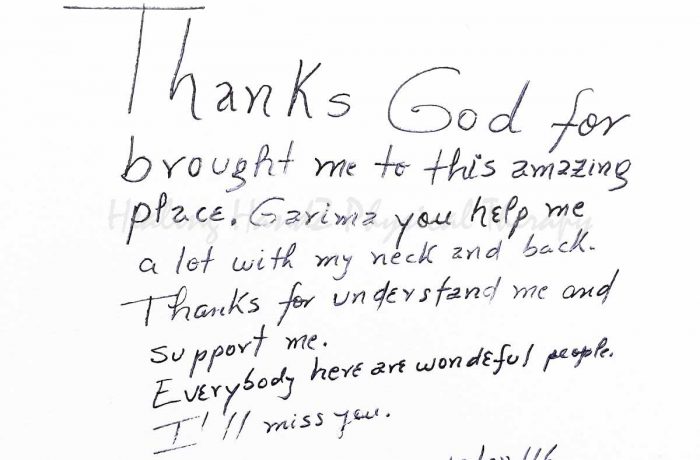 Thanks God for
brought me to this amazing
place. Garima you help me
a lot with my neck and back.
Thanks for understand me and
support me.
Everybody here are wondeful people.
I'll miss you.